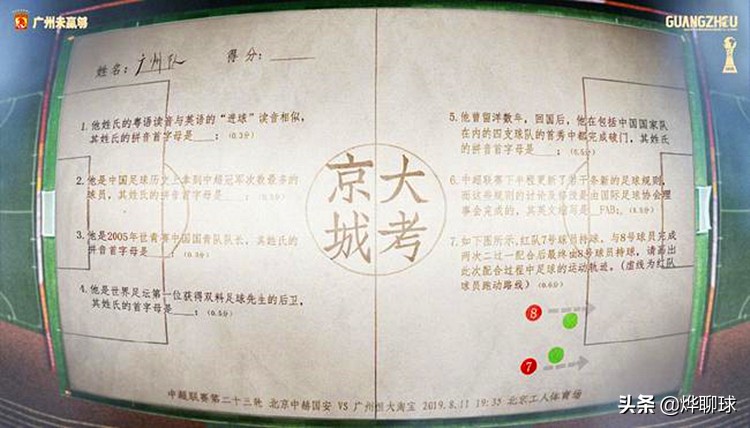 广州未赢够
GUANGZHOU
姓名：广州队
得分：
1. 他姓氏的粤语读音与英语的“进球”读音相似，
其姓氏的拼音首字母是____；（0.3分）
2. 他是中国足球历史上拿到中超冠军次数最多的
球员，其姓氏的拼音首字母是____；
3. 他是2005年世青赛中国国青队队长，其姓氏的
拼音首字母是____；
4. 他是世界足坛第一位获得双料足球先生的后卫，
其姓氏的首字母是____；（0.5分）
京城
大考
5. 他曾留洋数年，回国后，他在包括中国国家队
在内的四支球队的首秀中都完成破门，其姓氏
的拼音首字母是____；
6. 中超联赛下半程更新了若干条新的足球规则，
而这些规则的讨论及修改是由国际足球协会理
事会完成的，其英文缩写是__FAB；
7. 如下图所示，红队7号球员持球，与8号球员完成
两次二过一配合后最终由8号球员持球，请画出
此次配合过程中足球的运动轨迹。（虚线为红队
球员跑动路线）（0.6分）
8
7
中超联赛第二十三轮 北京中赫国安 VS 广州恒大淘宝 2019.8.11 19:35 北京工人体育场
头条 @烨聊球